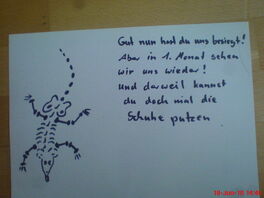 Gut nun hast du uns besiegt!
Aber in 1. Monat sehen
wir uns wieder!
und derweil kannst
du doch mal die
Schuhe putzen